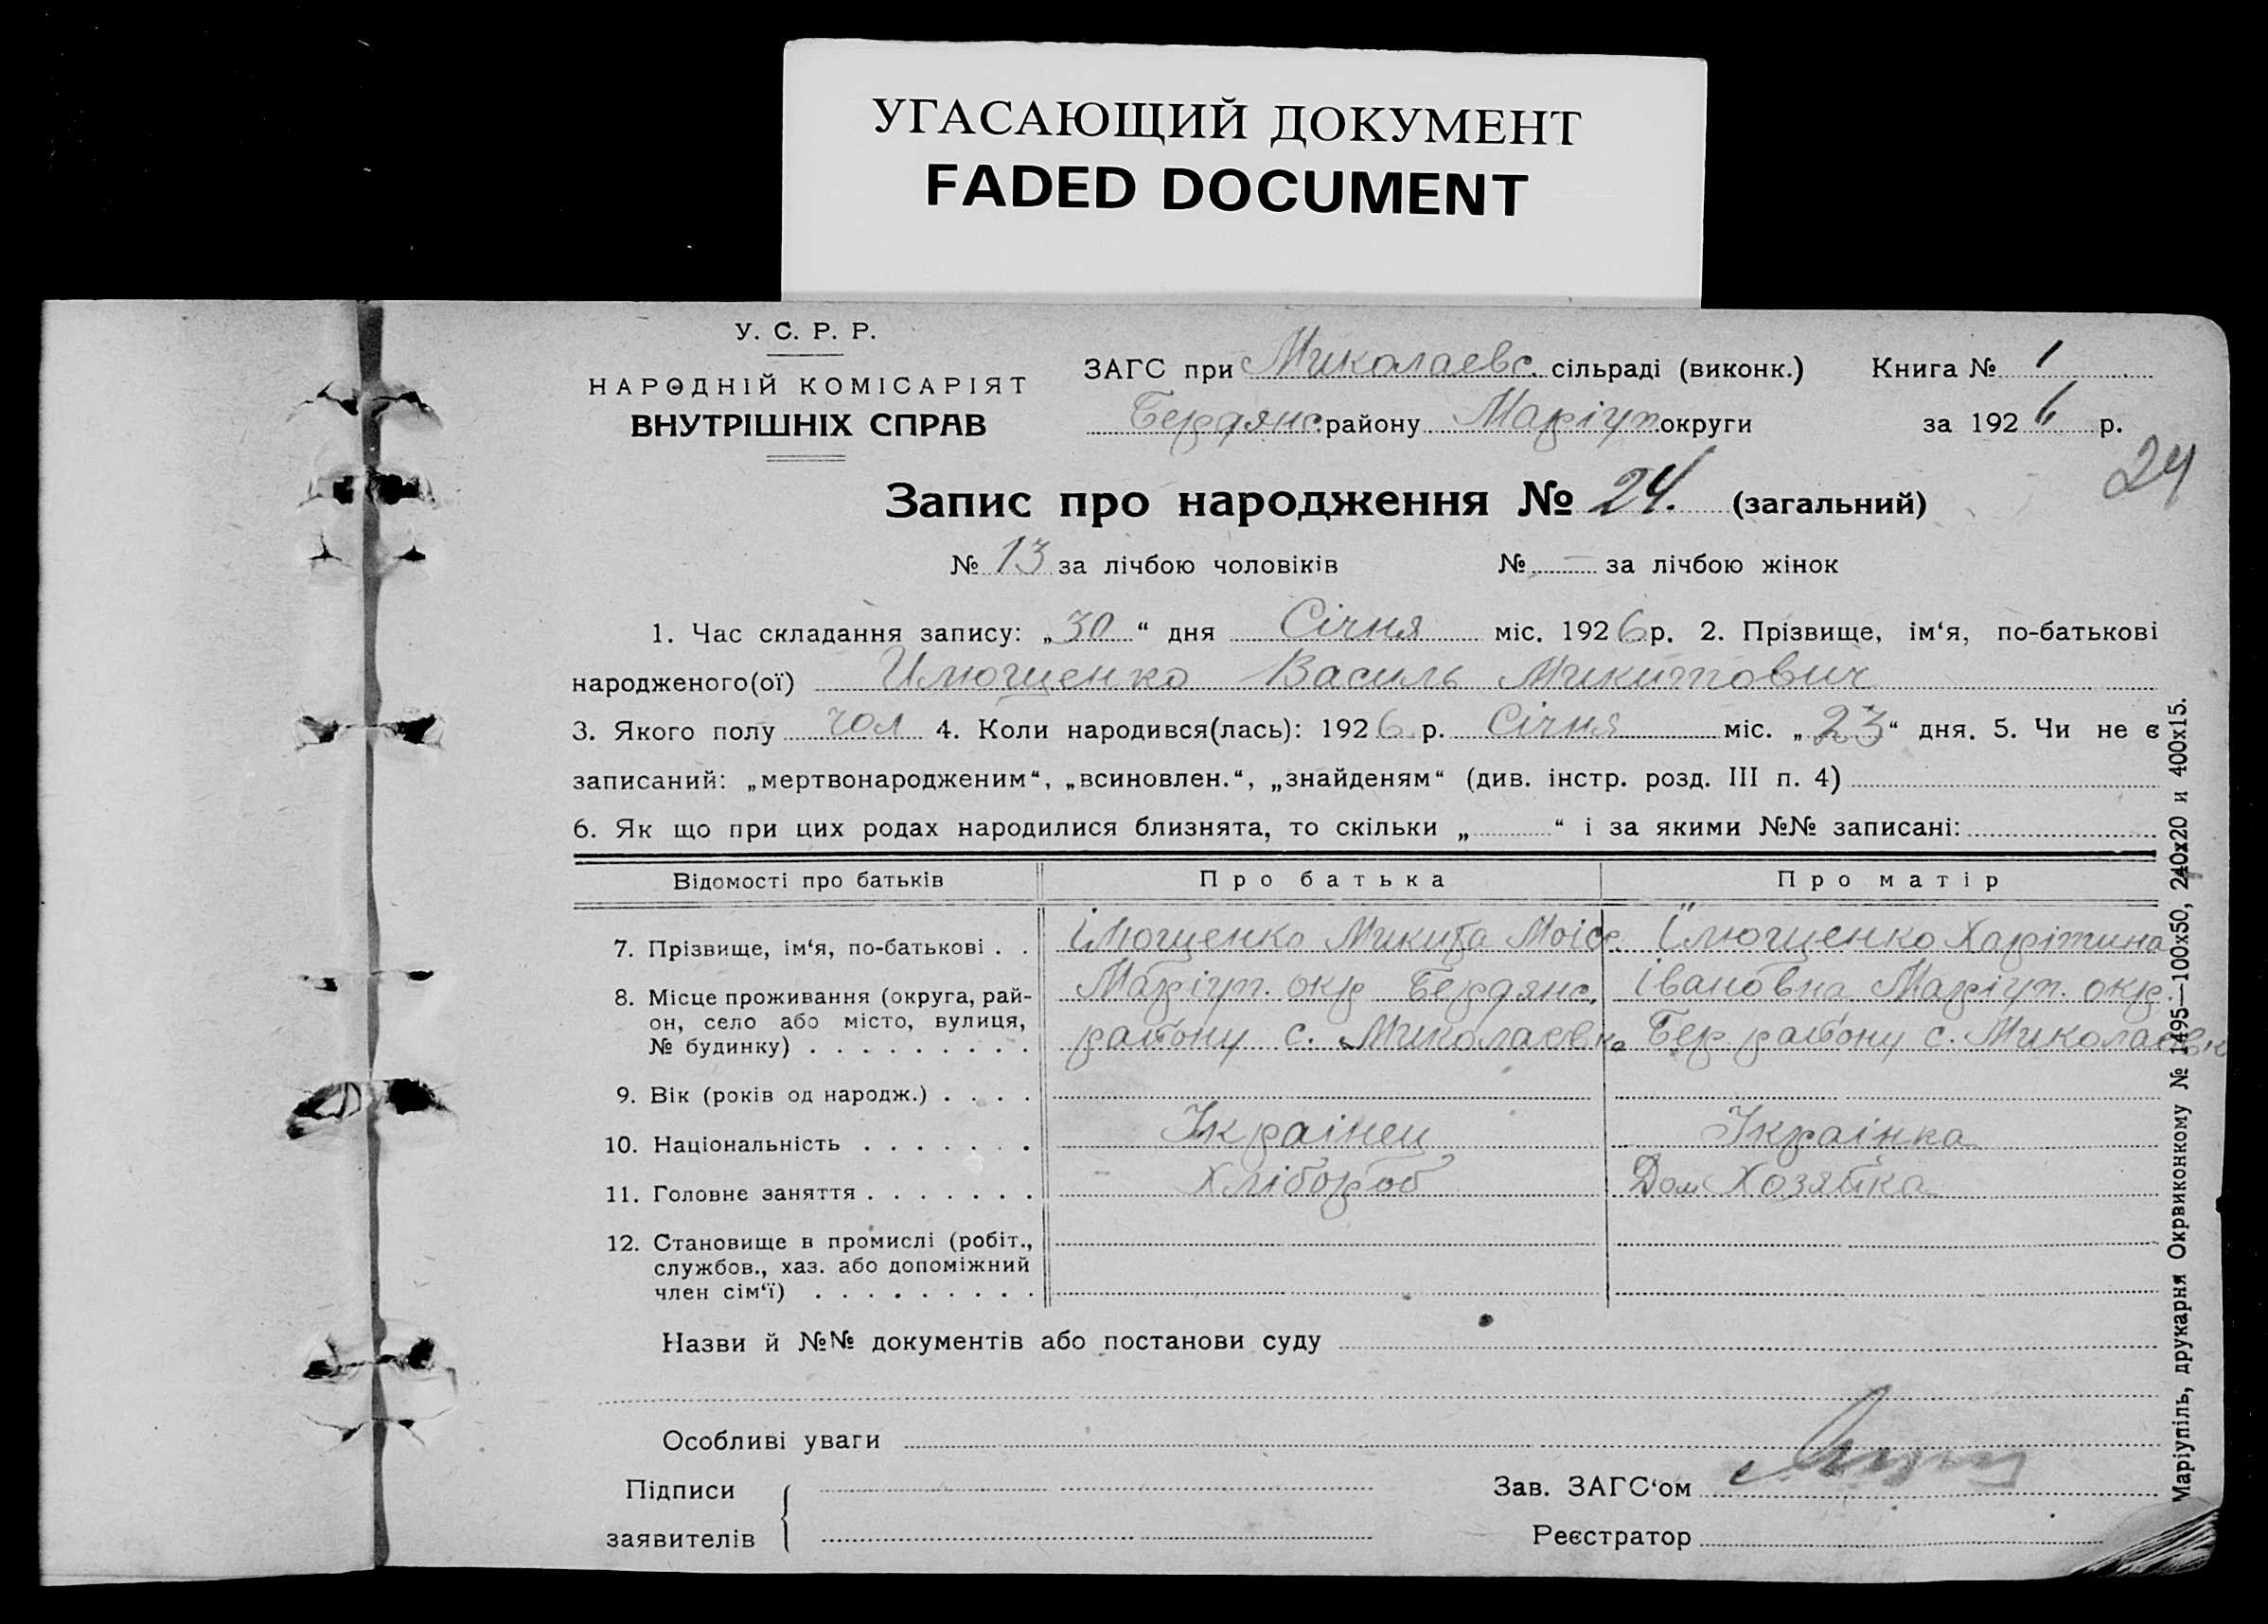 УГАСАЮЩИЙ ДОКУМЕНТ
FADED DOCUMENT
У. С. Р. Р.
НАРОДНІЙ КОМІСАРІЯТ
ВНУТРІШНІХ СПРАВ
ЗАГС при Миколаевс. сільраді (виконк.) Книга № 1
Бердянс. району Маріуп. округи за 1926 р.
24
Запис про народження № 24. (загальний)
№ 13 за лічбою чоловіків № — за лічбою жінок
1. Час складання запису: „30“ дня Січня міс. 1926 р. 2. Прізвище, ім‘я, по-батькові
народженого(ої) Илющенко Василь Микитович
3. Якого полу чол 4. Коли народився(лась): 1926 р. Січня міс. „23“ дня. 5. Чи не є
записаний: „мертвонародженим“, „всиновлен.“, „знайденям“ (див. інстр. розд. III п. 4)
6. Як що при цих родах народилися близнята, то скільки „ “ і за якими №№ записані:
Відомості про батьків Про батька Про матір
7. Прізвище, ім‘я, по-батькові . . Ілющенко Микита Моісе. Ілющенко Харітина
8. Місце проживання (округа, рай- Маріуп. окр Бердянс. Івановна Маріуп. окр.
он, село або місто, вулиця, району с. Миколаевка Бер району с. Миколаевк
№ будинку) . . . . . . . . .
9. Вік (років од народж.) . . . .
10. Національність . . . . . . . Українец Українка
11. Головне заняття . . . . . . . Хлібороб Дом Хозяйка
12. Становище в промислі (робіт.,
службов., хаз. або допоміжний
член сім‘ї) . . . . . . . . .
Назви й №№ документів або постанови суду
Особливі уваги
Підписи
заявителів
Зав. ЗАГС‘ом
Реєстратор
Маріупіль, друкарня Окрвиконкому № 1495—100х50, 240х20 и 400х15.